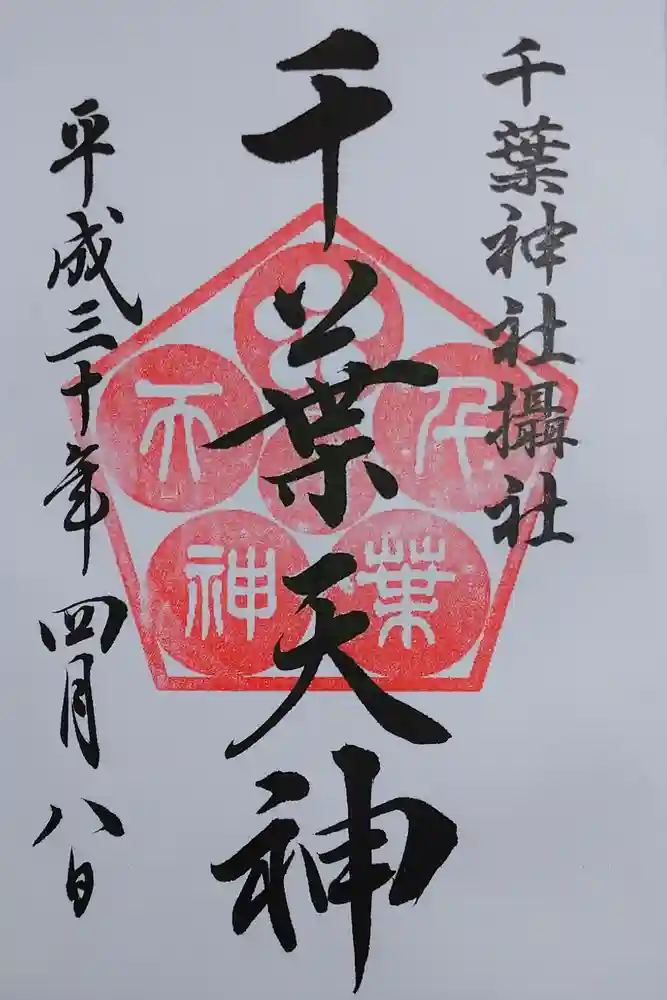 千葉神社攝社
千葉天神
千葉天神
平成三十年四月八日